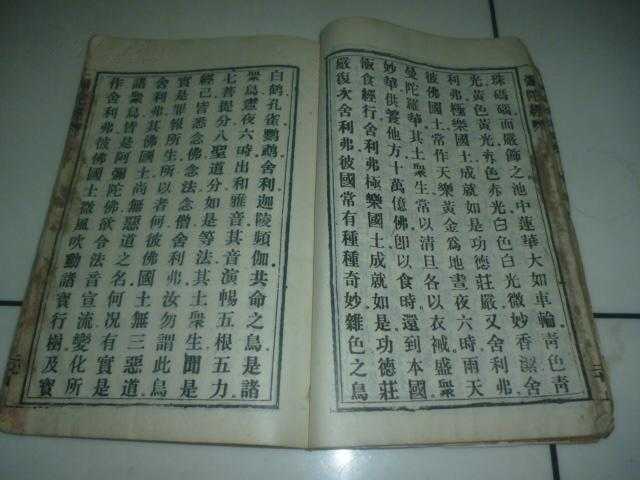 彌陀經
珠碼碯而嚴飾之池中蓮華大如車輪青色青
光黃色黃光赤色赤光白色白光微妙香潔舍
利弗極樂國土成就如是功德莊嚴又舍利弗
彼佛國土常作天樂黃金爲地晝夜六時雨天
曼陀羅華其土衆生常以清旦各以衣祴盛衆
妙華供養他方十萬億佛卽以食時還到本國
飯食經行舍利弗極樂國土成就如是功德莊
嚴復次舍利弗彼國常有種種奇妙雜色之鳥
白鶴孔雀鸚鵡舍利迦陵頻伽共命之鳥是諸
衆鳥晝夜六時出和雅音其音演暢五根五力
七菩提分八聖道分如是等法其土衆生聞是
音已皆悉念佛念法念僧舍利弗汝勿謂此鳥
實是罪報所生所以者何彼佛國土無三惡道
舍利弗其佛國土尚無惡道之名何况有實是
諸衆鳥皆是阿彌陀佛欲令法音宣流變化所
作舍利弗彼佛國土微風吹動諸寶行樹及寶